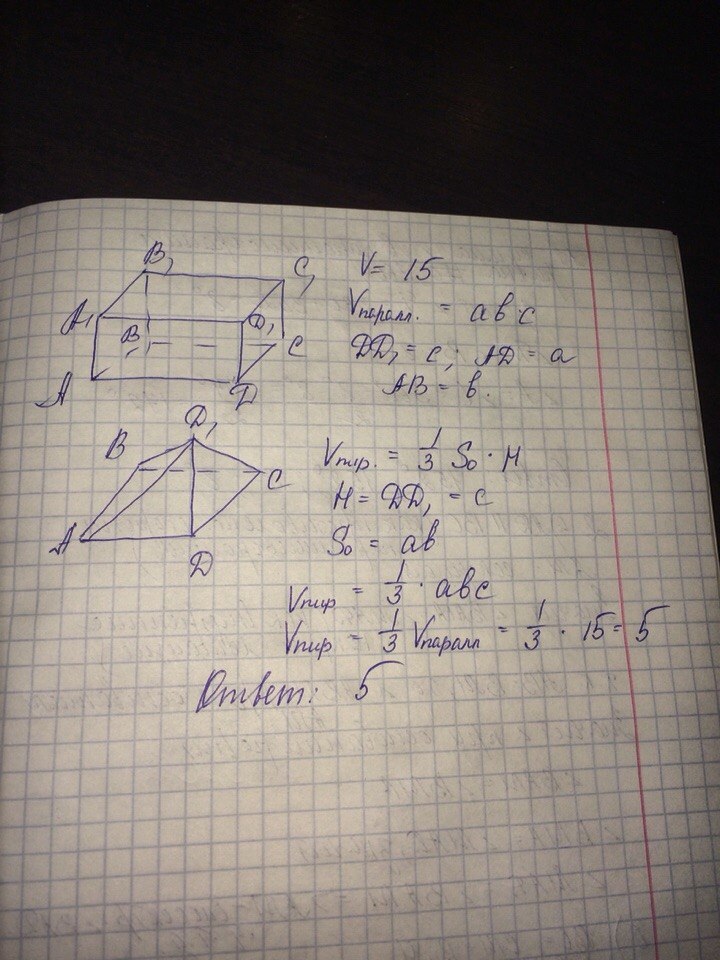 B₁ C₁ V = 15
A₁ B D₁ C Vпаралл. = abc
DD₁ = c; AD = a
A D AB = b.
D₁
B C Vпир. = 1/3 S₀ · H
H = DD₁ = c
A D S₀ = ab
Vпир = 1/3 · abc
Vпир = 1/3 Vпаралл = 1/3 · 15 = 5
Ответ: 5